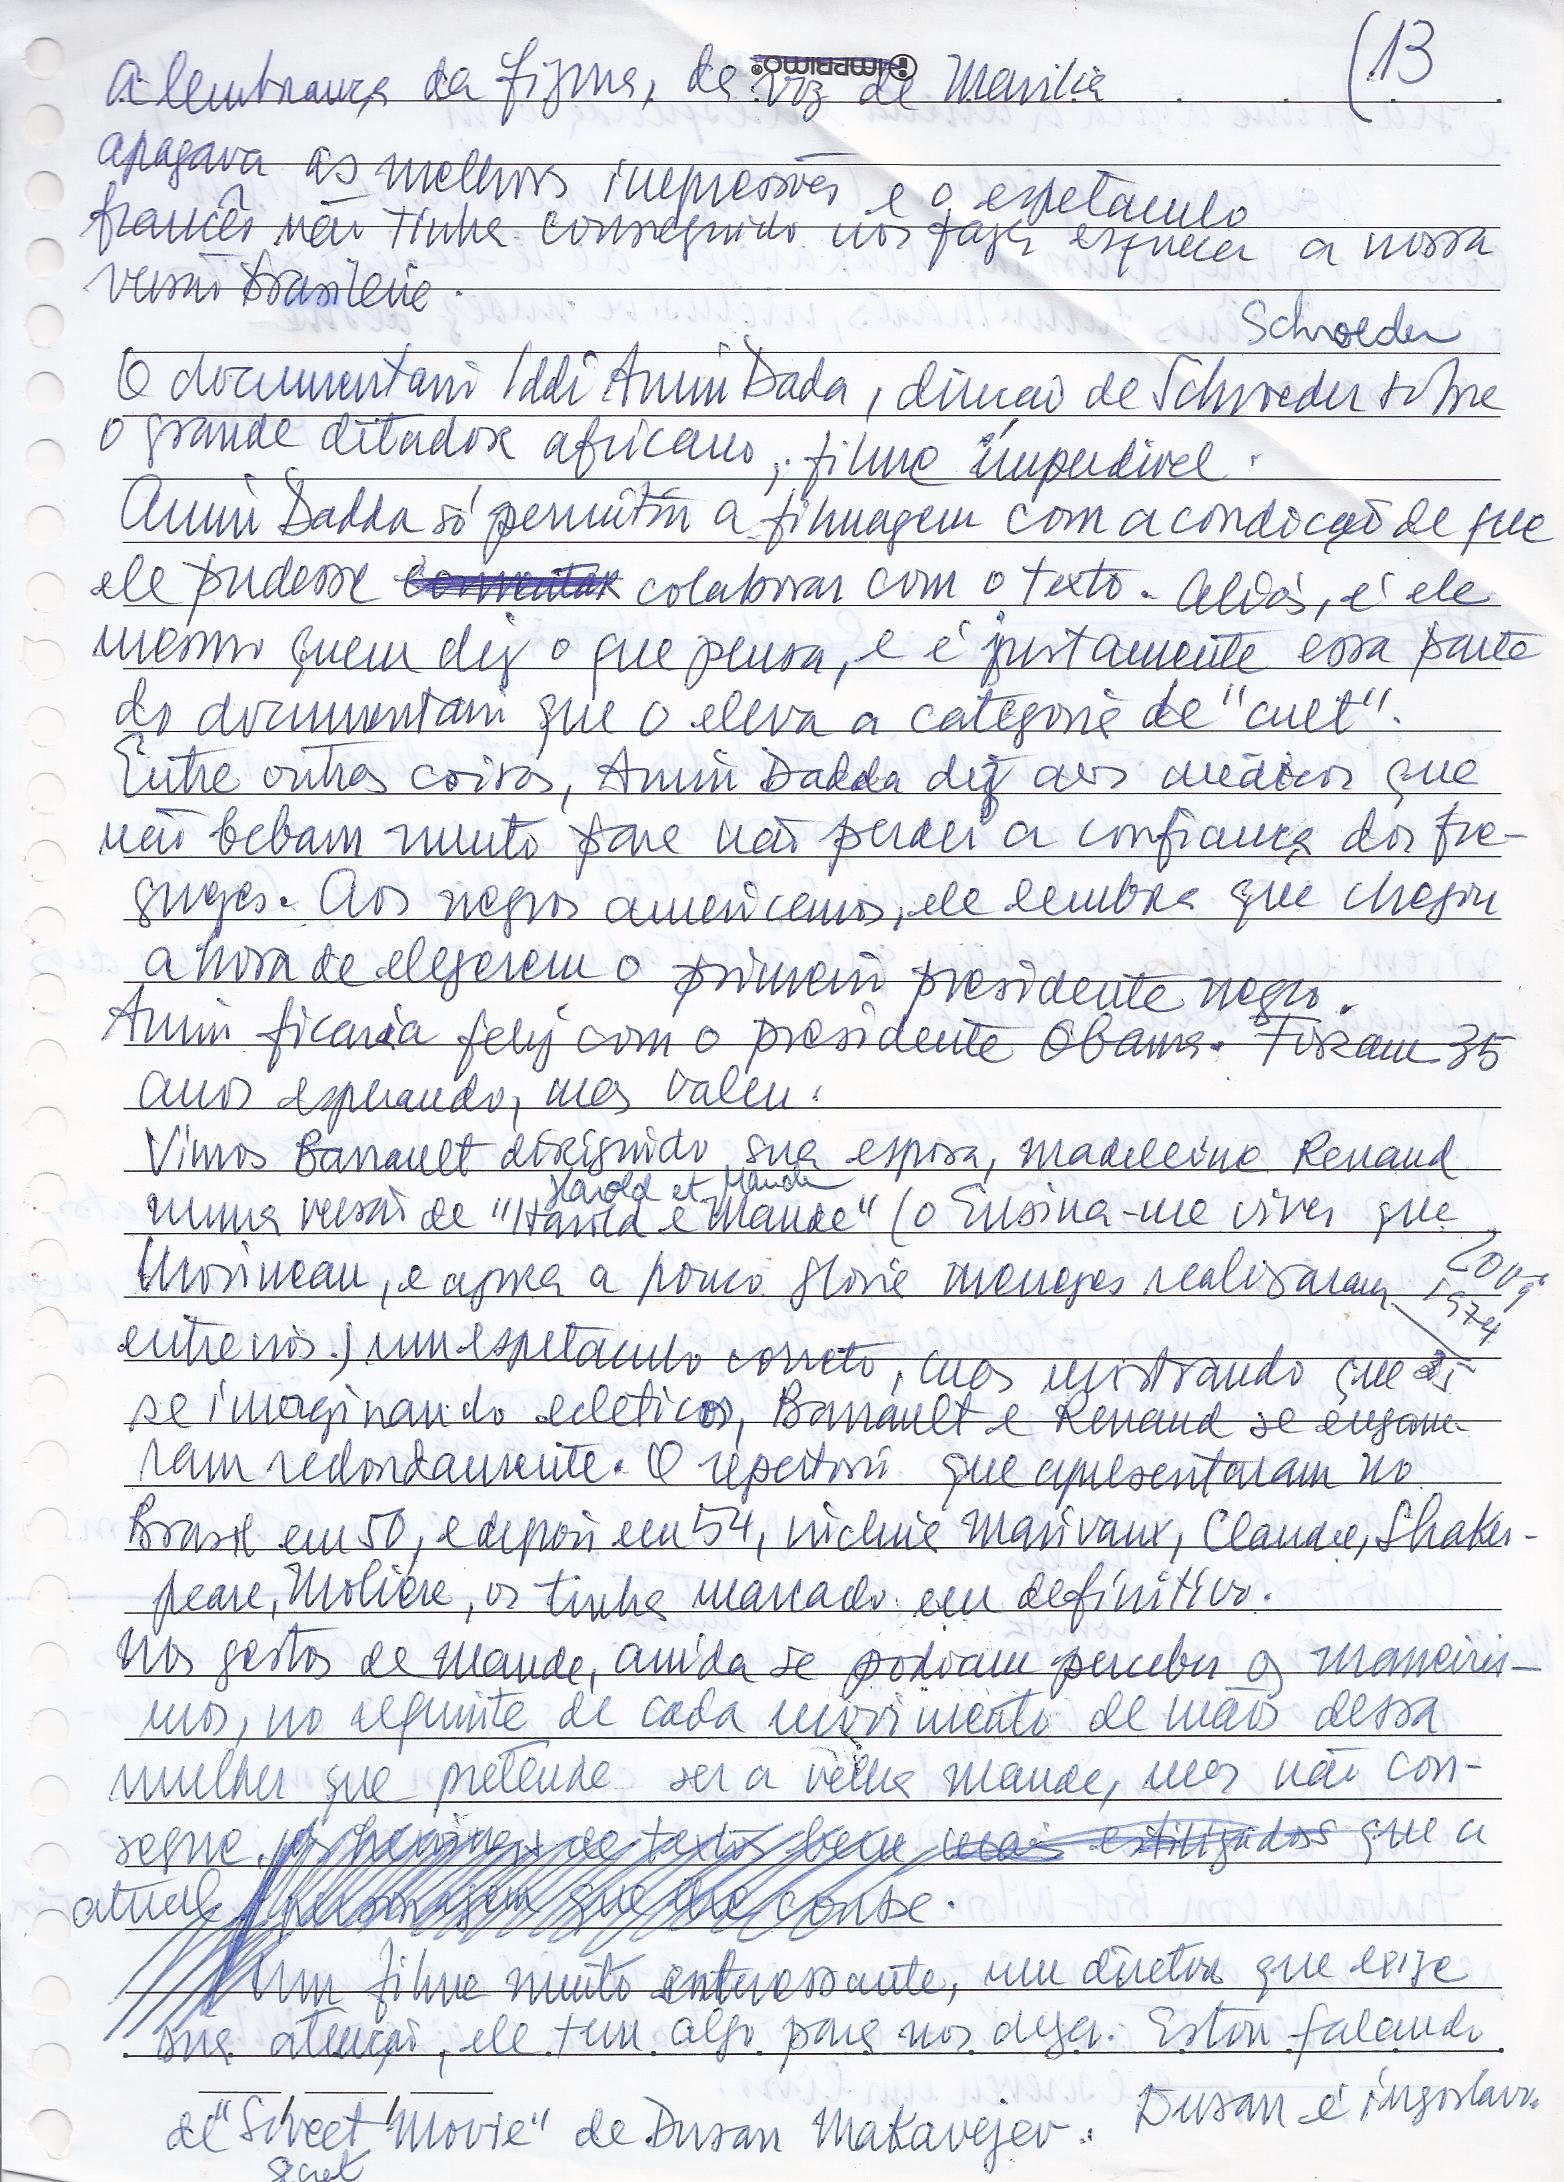 (13
IMPRIMO
A lembrança da figura, da voz de Marilia
apagava as melhores impressões e o espetaculo
francês não tinha conseguido nos fazer esquecer a nossa
versão brasileira.
Schroeder
O documentario Iddi Amin Dada, direcao de Schroeder sobre
o grande ditador africano, filme imperdivel.
Amin Dadda só permitiu a filmagem com a condicção de que
ele pudesse comentar colaborar com o texto. Aliás, é ele
mesmo quem diz o que pensa, e é justamente essa parte
do documentario que o eleva a categoria de "cult".
Entre outras coisas, Amin Dadda diz aos médicos que
não bebam muito para não perder a confiança dos fre-
guezes. Aos negros americanos, ele lembra que chegou
a hora de elegerem o primeiro presidente negro.
Amin ficaria feliz com o presidente Obama. Ficaram 35
anos esperando, mas valeu.
Vimos Barrault dirigindo sua esposa, Madeleine Renaud
Harold et Maude
numa versão de "Harold e Maude" (o Ensina-me viver que
Morineau, e agora a pouco Gloria Menezes realizaram
2009
1974
entre nós.) um espetaculo correto, mas mostrando que
se imaginando ecleticos, Barrault e Renaud se engana-
ram redondamente. O repertorio que apresentaram no
Brasil em 50, e depois em 54, inclui Marivaux, Claudel, Shakes-
peare, Moliere, os tinha marcado em definitivo.
Nos gestos de Maude, ainda se podiam perceber os maneiris-
mos, no requinte de cada movimento de mãos dessa
mulher que pretende ser a velha Maude, mas não con-
segue. de textos bem mais que a
atual personagem que
Um filme muito interessante, um diretor que exige
sua atenção, ele tem algo para nos dizer. Estou falando
de "Sweet Movie" de Dusan Makavejev. Dusan é iugoslavo
secret